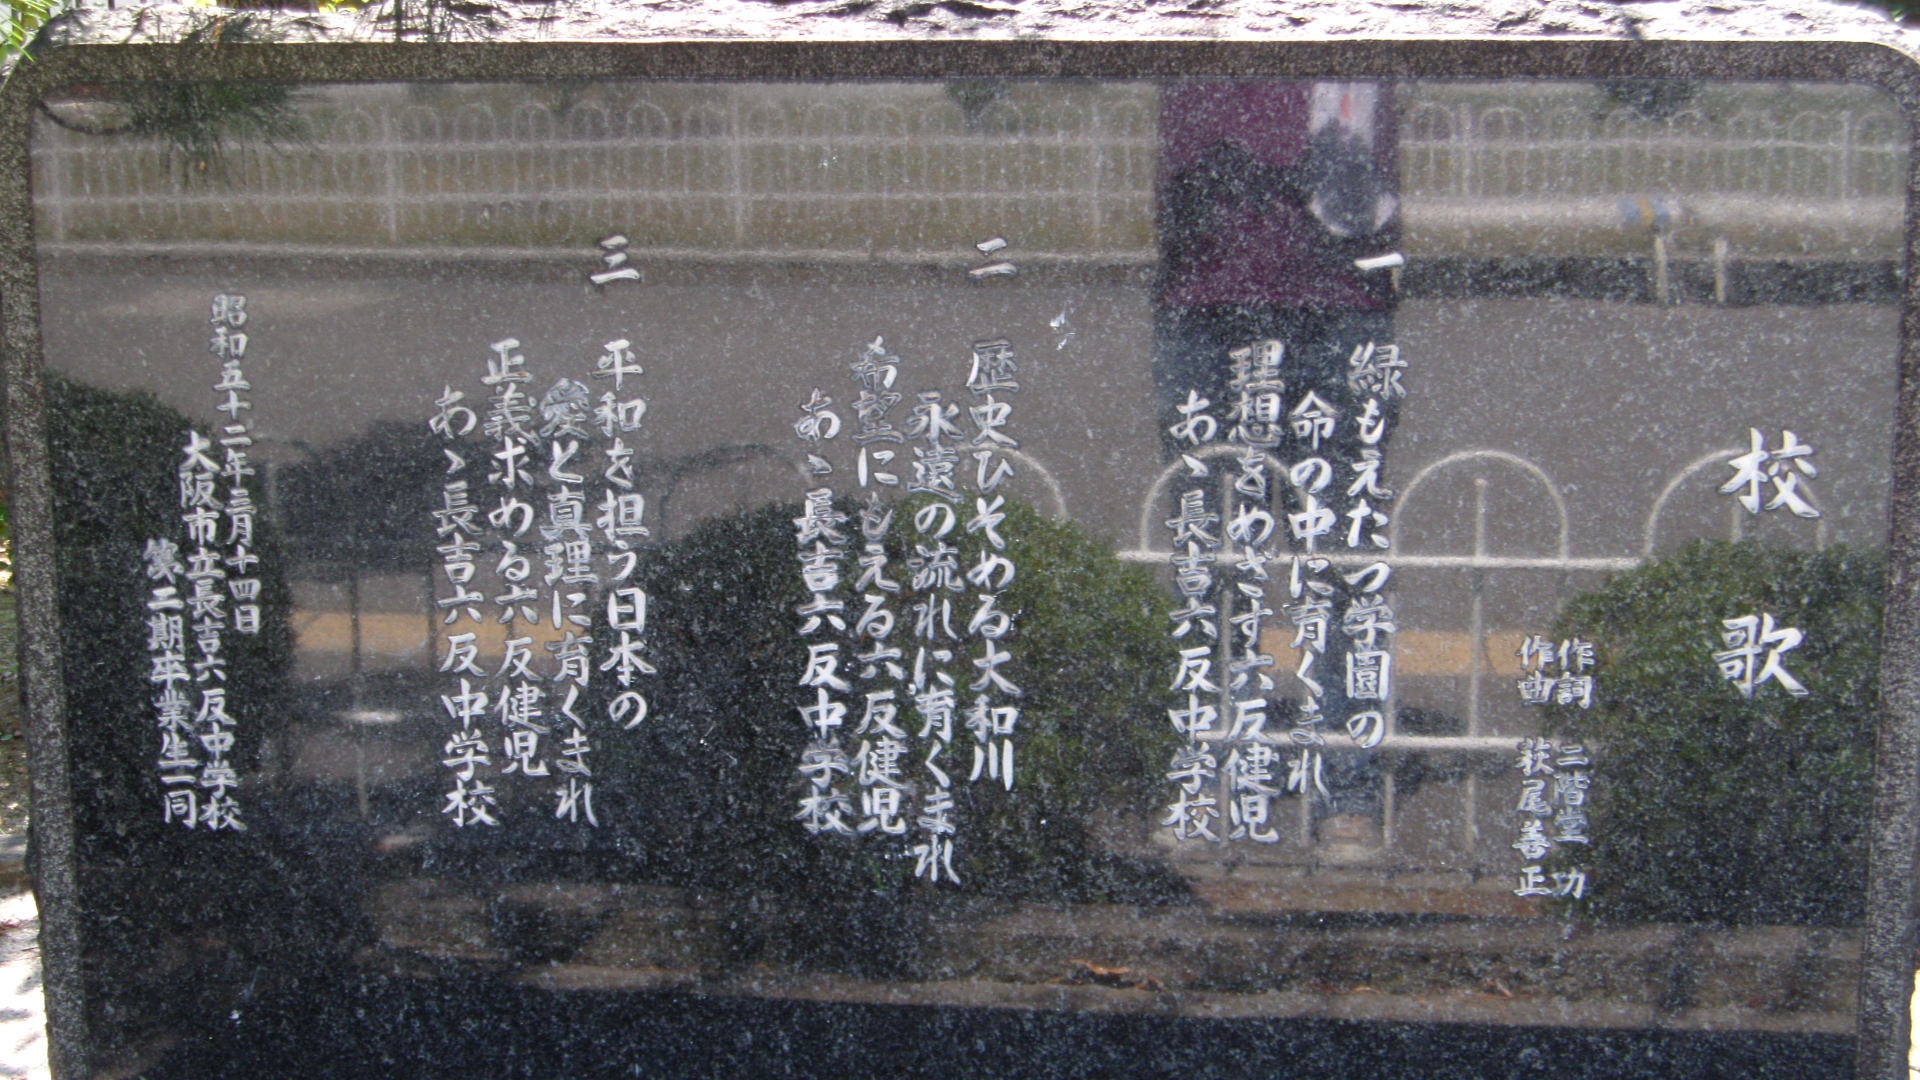 校歌
作詞 二階堂 功
作曲 萩尾善正
一
緑もえたつ学園の
命の中に育くまれ
理想をめざす六反健児
あゝ長吉六反中学校
二
歴史ひそめる大和川
永遠の流れに育くまれ
希望にもえる六反健児
あゝ長吉六反中学校
三
平和を担う日本の
愛と真理に育くまれ
正義求める六反健児
あゝ長吉六反中学校
昭和五十二年三月十四日
大阪市立長吉六反中学校
第二期卒業生一同